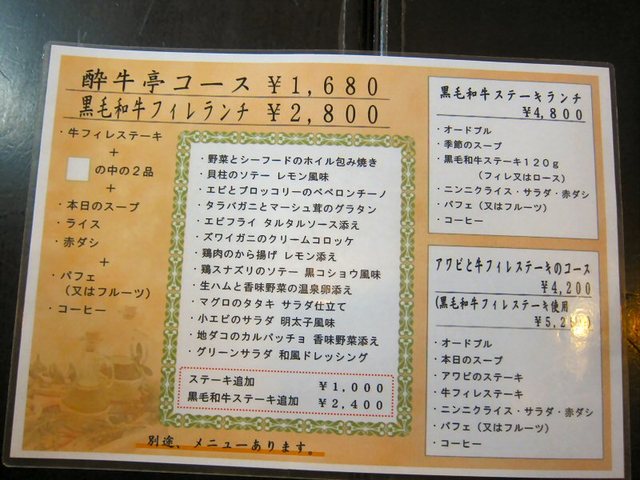 酔牛亭コース ￥1,680
黒毛和牛フィレランチ ￥2,800
・牛フィレステーキ
＋
の中の２品
＋
・本日のスープ
・ライス
・赤ダシ
＋
・パフェ
（又はフルーツ）
・コーヒー
・野菜とシーフードのホイル包み焼き
・貝柱のソテー レモン風味
・エビとブロッコリーのペペロンチーノ
・タラバガニとマーシュ茸のグラタン
・エビフライ タルタルソース添え
・ズワイガニのクリームコロッケ
・鶏肉のから揚げ レモン添え
・鶏スナズリのソテー 黒コショウ風味
・生ハムと香味野菜の温泉卵添え
・マグロのタタキ サラダ仕立て
・小エビのサラダ 明太子風味
・地ダコのカルパッチョ 香味野菜添え
・グリーンサラダ 和風ドレッシング
ステーキ追加 ￥1,000
黒毛和牛ステーキ追加 ￥2,400
別途、メニューあります。
黒毛和牛ステーキランチ
￥4,800
・オードブル
・季節のスープ
・黒毛和牛ステーキ１２０ｇ
（フィレ又はロース）
・ニンニクライス・サラダ・赤ダシ
・パフェ（又はフルーツ）
・コーヒー
アワビと牛フィレステーキのコース
￥4,200
(黒毛和牛フィレステーキ使用
・オードブル
・本日のスープ
・アワビのステーキ
・牛フィレステーキ
・ニンニクライス・サラダ・赤ダシ
・パフェ（又はフルーツ）
・コーヒー